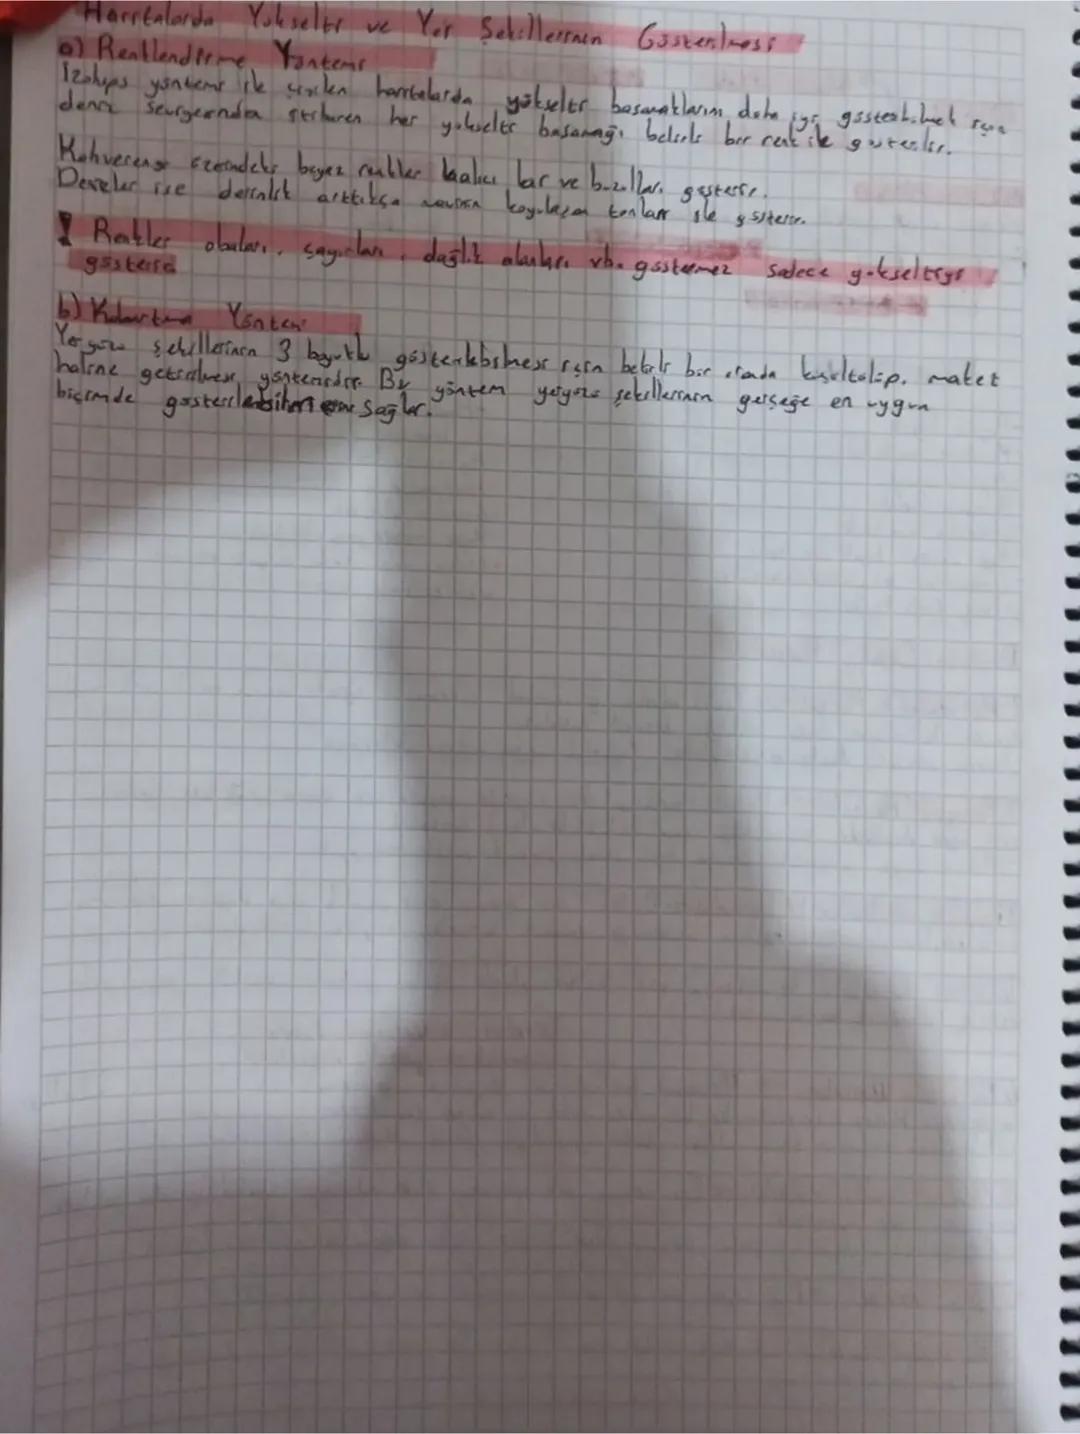 Haritalarda Yükselti ve Yer Şekillerinin Gösterilmesi
a) Renklendirme Yöntemi
İzohips yöntemi ile çizilen haritalarda yükselti basamaklarını daha iyi gösterebilmek için
deniz seviyesinden itibaren her yükselti basamağı belirli bir renk ile gösterilir.
Kahverengi üzerindeki beyaz renkler kalıcı kar ve buzulları gösterir.
Denizler ise derinlik arttıkça mavinin koyulaşan tonları ile gösterir.
! Renkler obaları, çayırları, dağlık alanları vb. göstermez sadece yükseltiyi
gösterir
b) Kabartma Yöntemi
Yeryüzü şekillerinin 3 boyutlu gösterilebilmesi için belirli bir oranda küçültülüp, maket
haline getirilmesi yöntemidir. Bu yöntem yeryüzü şekillerinin gerçeğe en uygun
biçimde gösterilebilmesini sağlar.